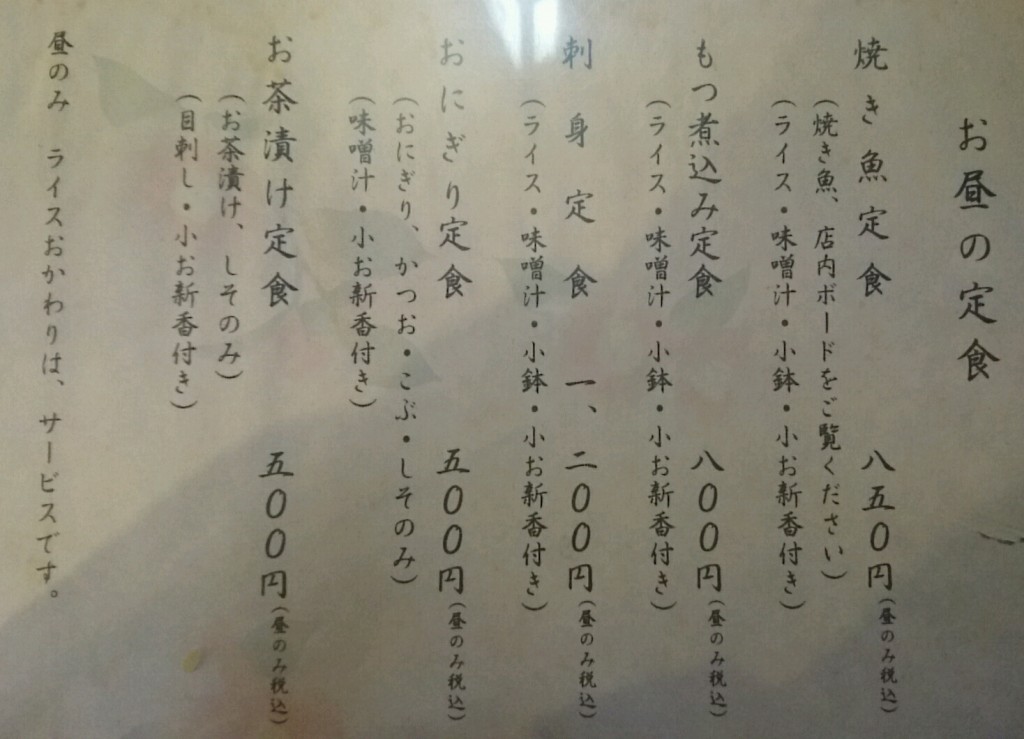 お昼の定食
焼き魚定食 八五０円(昼のみ税込)
(焼き魚、店内ボードをご覧ください)
(ライス・味噌汁・小鉢・小お新香付き)
もつ煮込み定食 八００円(昼のみ税込)
(ライス・味噌汁・小鉢・小お新香付き)
刺身定食 一、二００円(昼のみ税込)
(ライス・味噌汁・小鉢・小お新香付き)
おにぎり定食 五００円(昼のみ税込)
(おにぎり、かつお・こぶ・しそのみ)
(味噌汁・小お新香付き)
お茶漬け定食 五００円(昼のみ税込)
(お茶漬け、しそのみ)
(目刺し・小お新香付き)
昼のみ ライスおかわりは、サービスです。